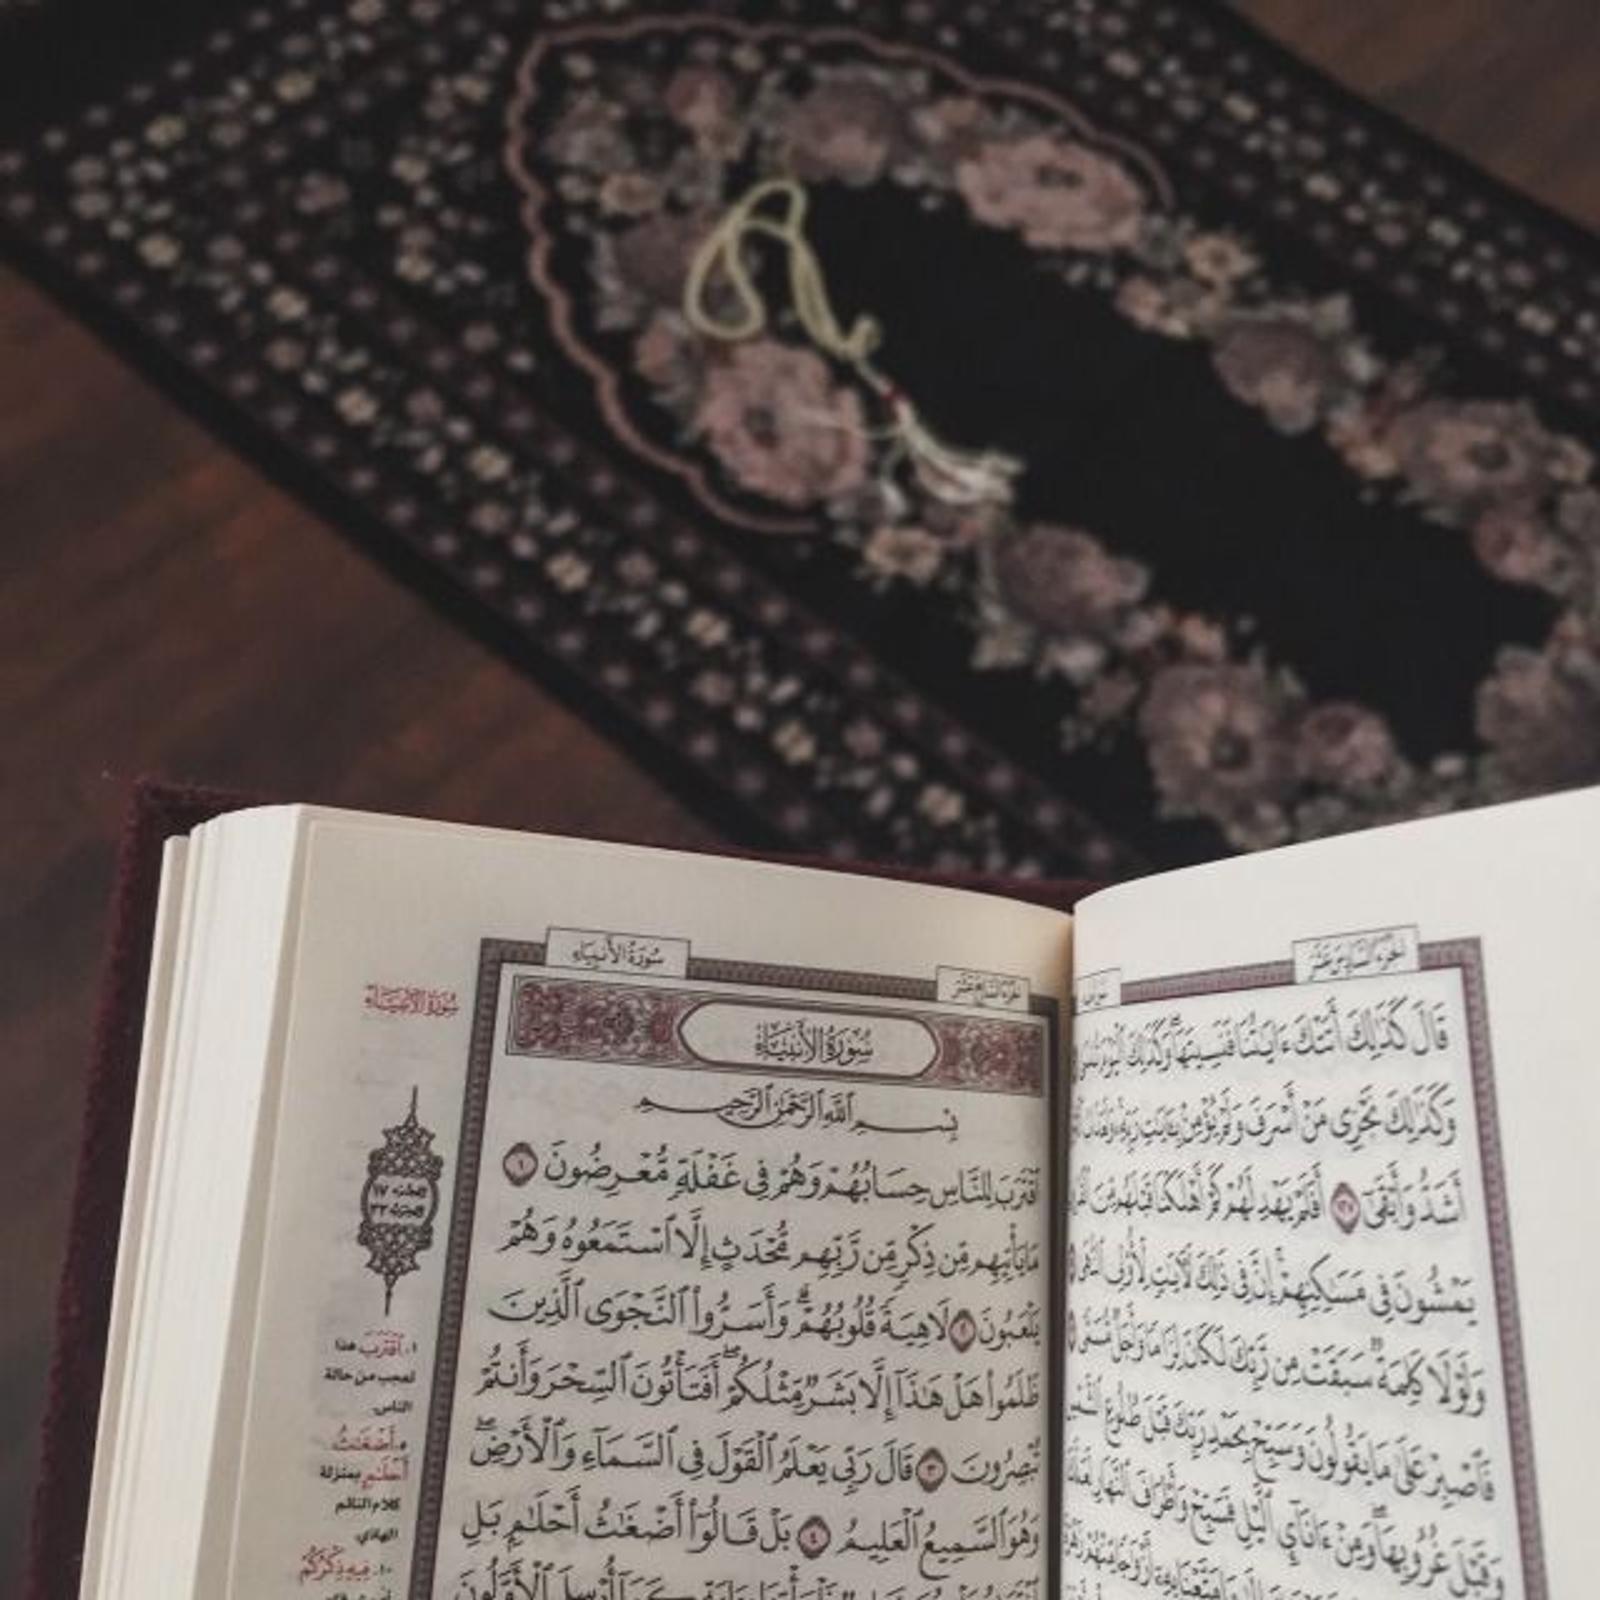 الجزء السادس عشر
قَالَ كَذَٰلِكَ أَتَتْكَ ءَايَٰتُنَا فَنَسِيتَهَا ۖ وَكَذَٰلِكَ ٱلْيَوْمَ تُنسَىٰ
وَكَذَٰلِكَ نَجْزِى مَنْ أَسْرَفَ وَلَمْ يُؤْمِنۢ بِـَٔايَٰتِ رَبِّهِۦ ۚ وَلَعَذَابُ
أَشَدُّ وَأَبْقَىٰٓ ١٢٧ أَفَلَمْ يَهْدِ لَهُمْ كَمْ أَهْلَكْنَا قَبْلَهُم مِّنَ ٱلْقُرُونِ
يَمْشُونَ فِى مَسَٰكِنِهِمْ ۗ إِنَّ فِى ذَٰلِكَ لَءَايَٰتٍ لِّأُو۟لِى ٱلنُّهَىٰ
وَلَوْلَا كَلِمَةٌ سَبَقَتْ مِن رَّبِّكَ لَكَانَ لِزَامًا وَأَجَلٌ مُّسَمًّى
فَٱصْبِرْ عَلَىٰ مَا يَقُولُونَ وَسَبِّحْ بِحَمْدِ رَبِّكَ قَبْلَ طُلُوعِ ٱلشَّمْسِ
وَقَبْلَ غُرُوبِهَا ۖ وَمِنْ ءَانَآئِ ٱلَّيْلِ فَسَبِّحْ وَأَطْرَافَ ٱلنَّهَارِ لَعَلَّكَ
سُورَةُ الأَنبِيَاءِ
الجزء السابع عشر
سُورَةُ الأَنبِيَاءِ
سُورَةُ الأَنبِيَاءِ
بِسْمِ ٱللَّهِ ٱلرَّحْمَٰنِ ٱلرَّحِيمِ
ٱقْتَرَبَ لِلنَّاسِ حِسَابُهُمْ وَهُمْ فِى غَفْلَةٍ مُّعْرِضُونَ ١
مَا يَأْتِيهِم مِّن ذِكْرٍ مِّن رَّبِّهِم مُّحْدَثٍ إِلَّا ٱسْتَمَعُوهُ وَهُمْ
يَلْعَبُونَ ٢ لَاهِيَةً قُلُوبُهُمْ ۗ وَأَسَرُّوا۟ ٱلنَّجْوَى ٱلَّذِينَ
ظَلَمُوا۟ هَلْ هَٰذَآ إِلَّا بَشَرٌ مِّثْلُكُمْ ۖ أَفَتَأْتُونَ ٱلسِّحْرَ وَأَنتُمْ
تُبْصِرُونَ ٣ قَالَ رَبِّى يَعْلَمُ ٱلْقَوْلَ فِى ٱلسَّمَآءِ وَٱلْأَرْضِ ۖ
وَهُوَ ٱلسَّمِيعُ ٱلْعَلِيمُ ٤ بَلْ قَالُوٓا۟ أَضْغَٰثُ أَحْلَٰمٍۭ بَلِ
الجزء ١٧
الحزب ٣٣
١. ٱقْتَرَبَ هذا
لعجب من حالة
الناس.
٥. أَضْغَٰثُ
أَحْلَٰمٍ بمنزلة
كلام النائم
الهاذي.
١٠. فِيهِ ذِكْرُكُمْ